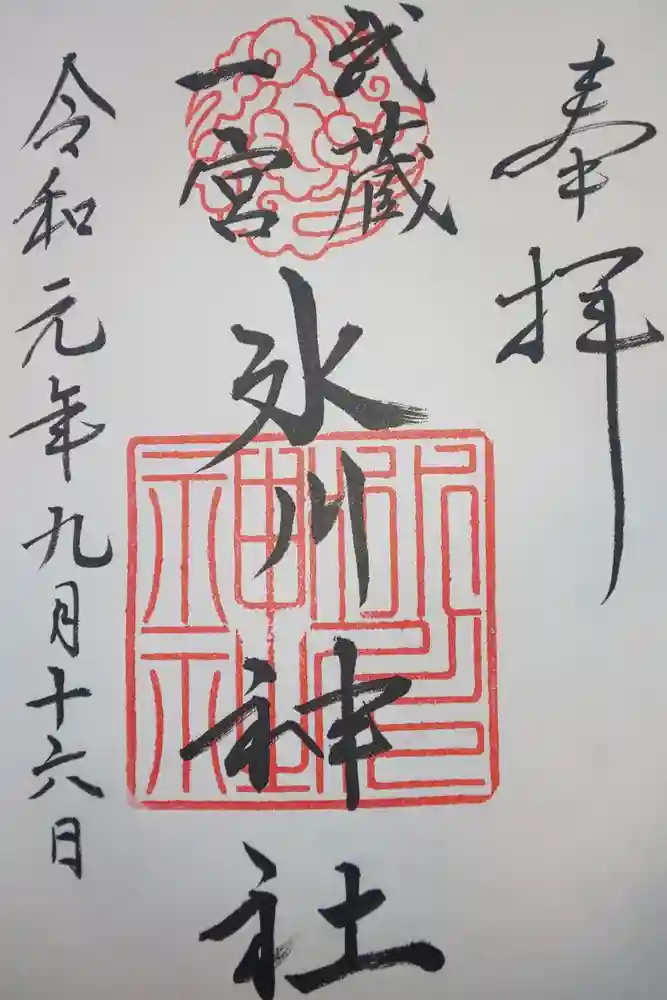 奉拝
武蔵
一宮
氷川神社
令和元年九月十六日